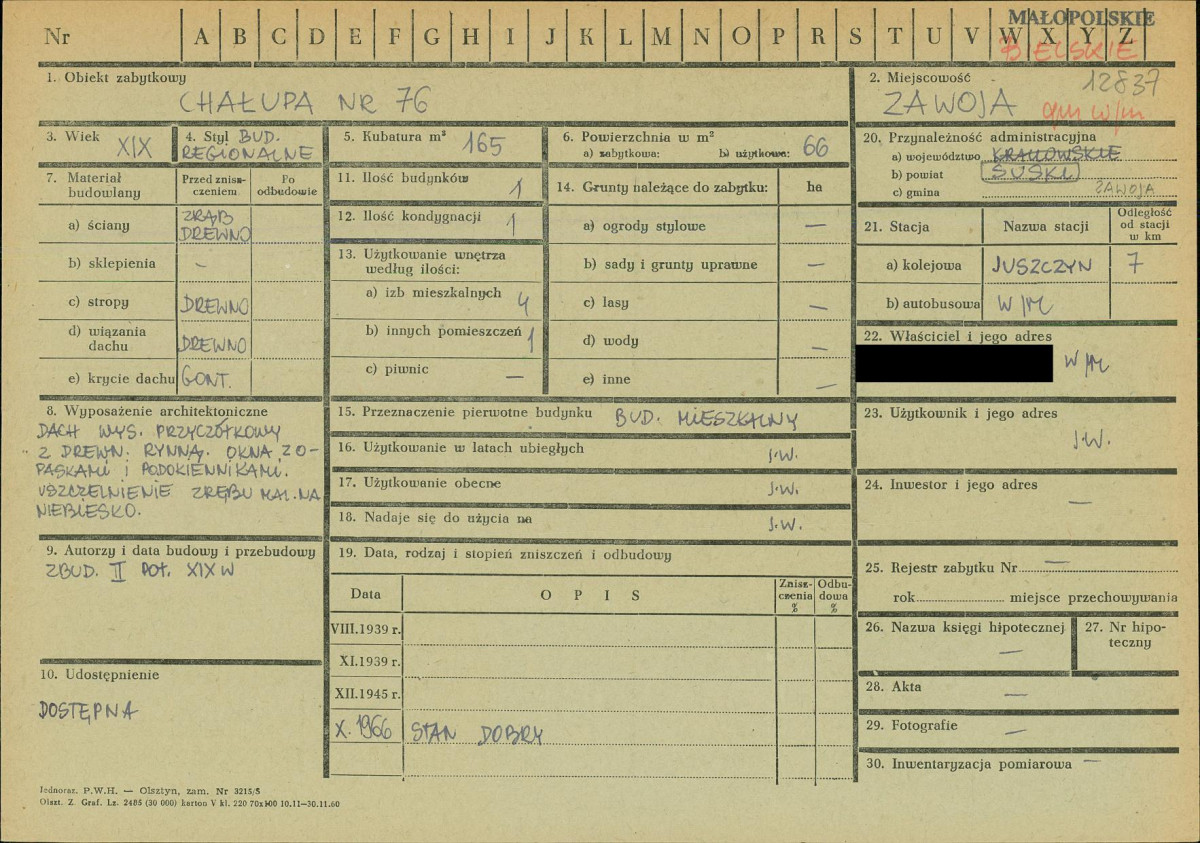 MAŁOPOLSKIE
Nr A B C D E F G H I J K L M N O P R S T U V W X Y Z
BIELSKIE
1. Obiekt zabytkowy
CHAŁUPA NR 76
2. Miejscowość
12837
ZAWOJA
3. Wiek XIX
4. Styl BUD.
REGIONALNE
5. Kubatura m³ 165
6. Powierzchnia w m²
a) zabytkowa: b) użytkowa: 66
7. Materiał
budowlany
Przed znisz-
czeniem
Po
odbudowie
a) ściany ZRĄB
DREWNO
b) sklepienia –
c) stropy DREWNO
d) wiązania
dachu DREWNO
e) krycie dachu GONT.
8. Wyposażenie architektoniczne
DACH WYS. PRZYCZÓŁKOWY
Z DREWN. RYNNĄ. OKNA Z O-
PASKAMI I PODOKIENNIKAMI.
USZCZELNIENIE ZRĘBU MAL. NA
NIEBIESKO.
9. Autorzy i data budowy i przebudowy
ZBUD. II POŁ. XIX W
10. Udostępnienie
DOSTĘPNA
11. Ilość budynków 1
12. Ilość kondygnacji 1
13. Użytkowanie wnętrza
według ilości:
a) izb mieszkalnych 4
b) innych pomieszczeń 1
c) piwnic —
14. Grunty należące do zabytku: ha
a) ogrody stylowe —
b) sady i grunty uprawne —
c) lasy —
d) wody —
e) inne —
15. Przeznaczenie pierwotne budynku BUD. MIESZKALNY
16. Użytkowanie w latach ubiegłych J.W.
17. Użytkowanie obecne J.W.
18. Nadaje się do użycia na J.W.
19. Data, rodzaj i stopień zniszczeń i odbudowy
Data O P I S Znisz-
czenia
% Odbu-
dowa
%
VIII.1939 r.
XI.1939 r.
XII.1945 r.
X. 1966 STAN DOBRY
20. Przynależność administracyjna
a) województwo KRAKOWSKIE
b) powiat SUSKI
c) gmina ZAWOJA
21. Stacja Nazwa stacji Odległość
od stacji
w km
a) kolejowa JUSZCZYN 7
b) autobusowa W/M
22. Właściciel i jego adres
W/M
23. Użytkownik i jego adres
J.W.
24. Inwestor i jego adres
—
25. Rejestr zabytku Nr —
rok miejsce przechowywania
26. Nazwa księgi hipotecznej
—
27. Nr hipo-
teczny
28. Akta —
29. Fotografie —
30. Inwentaryzacja pomiarowa —
Jednoraz. P.W.H. — Olsztyn, zam. Nr 3215/S
Olszt. Z. Graf. Lz. 2485 (30 000) karton V kl. 220 70x100 10.11—30.11.60